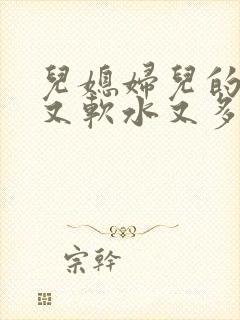 兒媳婦兒的
又軟水又多
宗幹